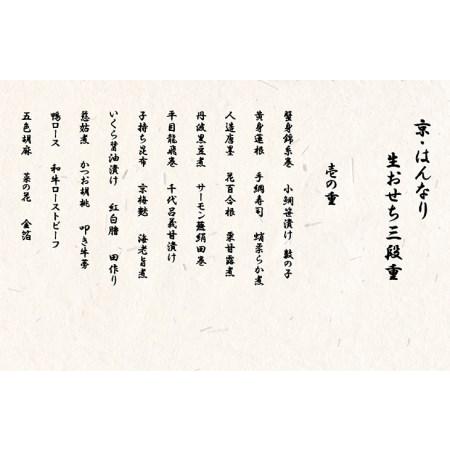 京・はんなり
生おせち三段重
壱の重
蟹身錦糸巻 小鯛笹漬け 数の子
黄身蓮根 手綱寿司 蛸柔らか煮
人造唐墨 花百合根 栗甘露煮
丹波黒豆煮 サーモン蕪絹田巻
平目龍飛巻 千代呂義甘漬け
子持ち昆布 京梅麩 海老旨煮
いくら醤油漬け 紅白膾 田作り
慈姑煮 かつお胡桃 叩き牛蒡
鴨ロース 和牛ローストビーフ
五色胡麻 菜の花 金箔